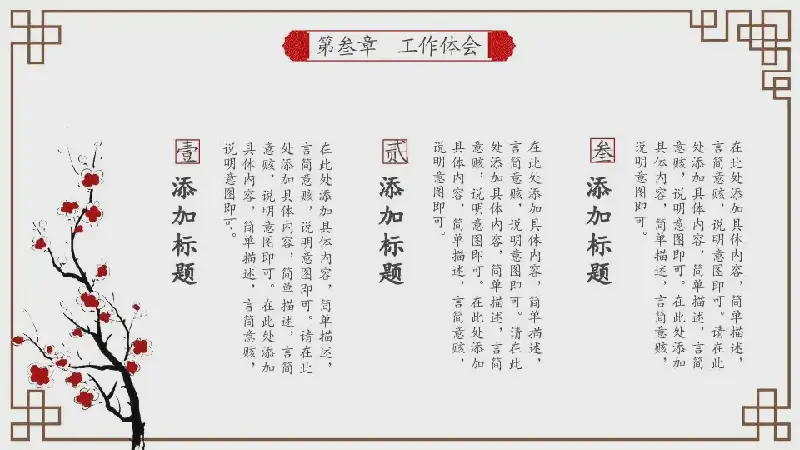 第叁章 工作体会
壹
添加标题
在此处添加具体内容，简单描述，
言简意赅，说明意图即可。请在此
处添加具体内容，简单描述，言简
意赅，说明意图即可。在此处添加
具体内容，简单描述，言简意赅，
说明意图即可。
贰
添加标题
在此处添加具体内容，简单描述，
言简意赅，说明意图即可。请在此
处添加具体内容，简单描述，言简
意赅，说明意图即可。在此处添加
具体内容，简单描述，言简意赅，
说明意图即可。
叁
添加标题
在此处添加具体内容，简单描述，
言简意赅，说明意图即可。请在此
处添加具体内容，简单描述，言简
意赅，说明意图即可。在此处添加
具体内容，简单描述，言简意赅，
说明意图即可。